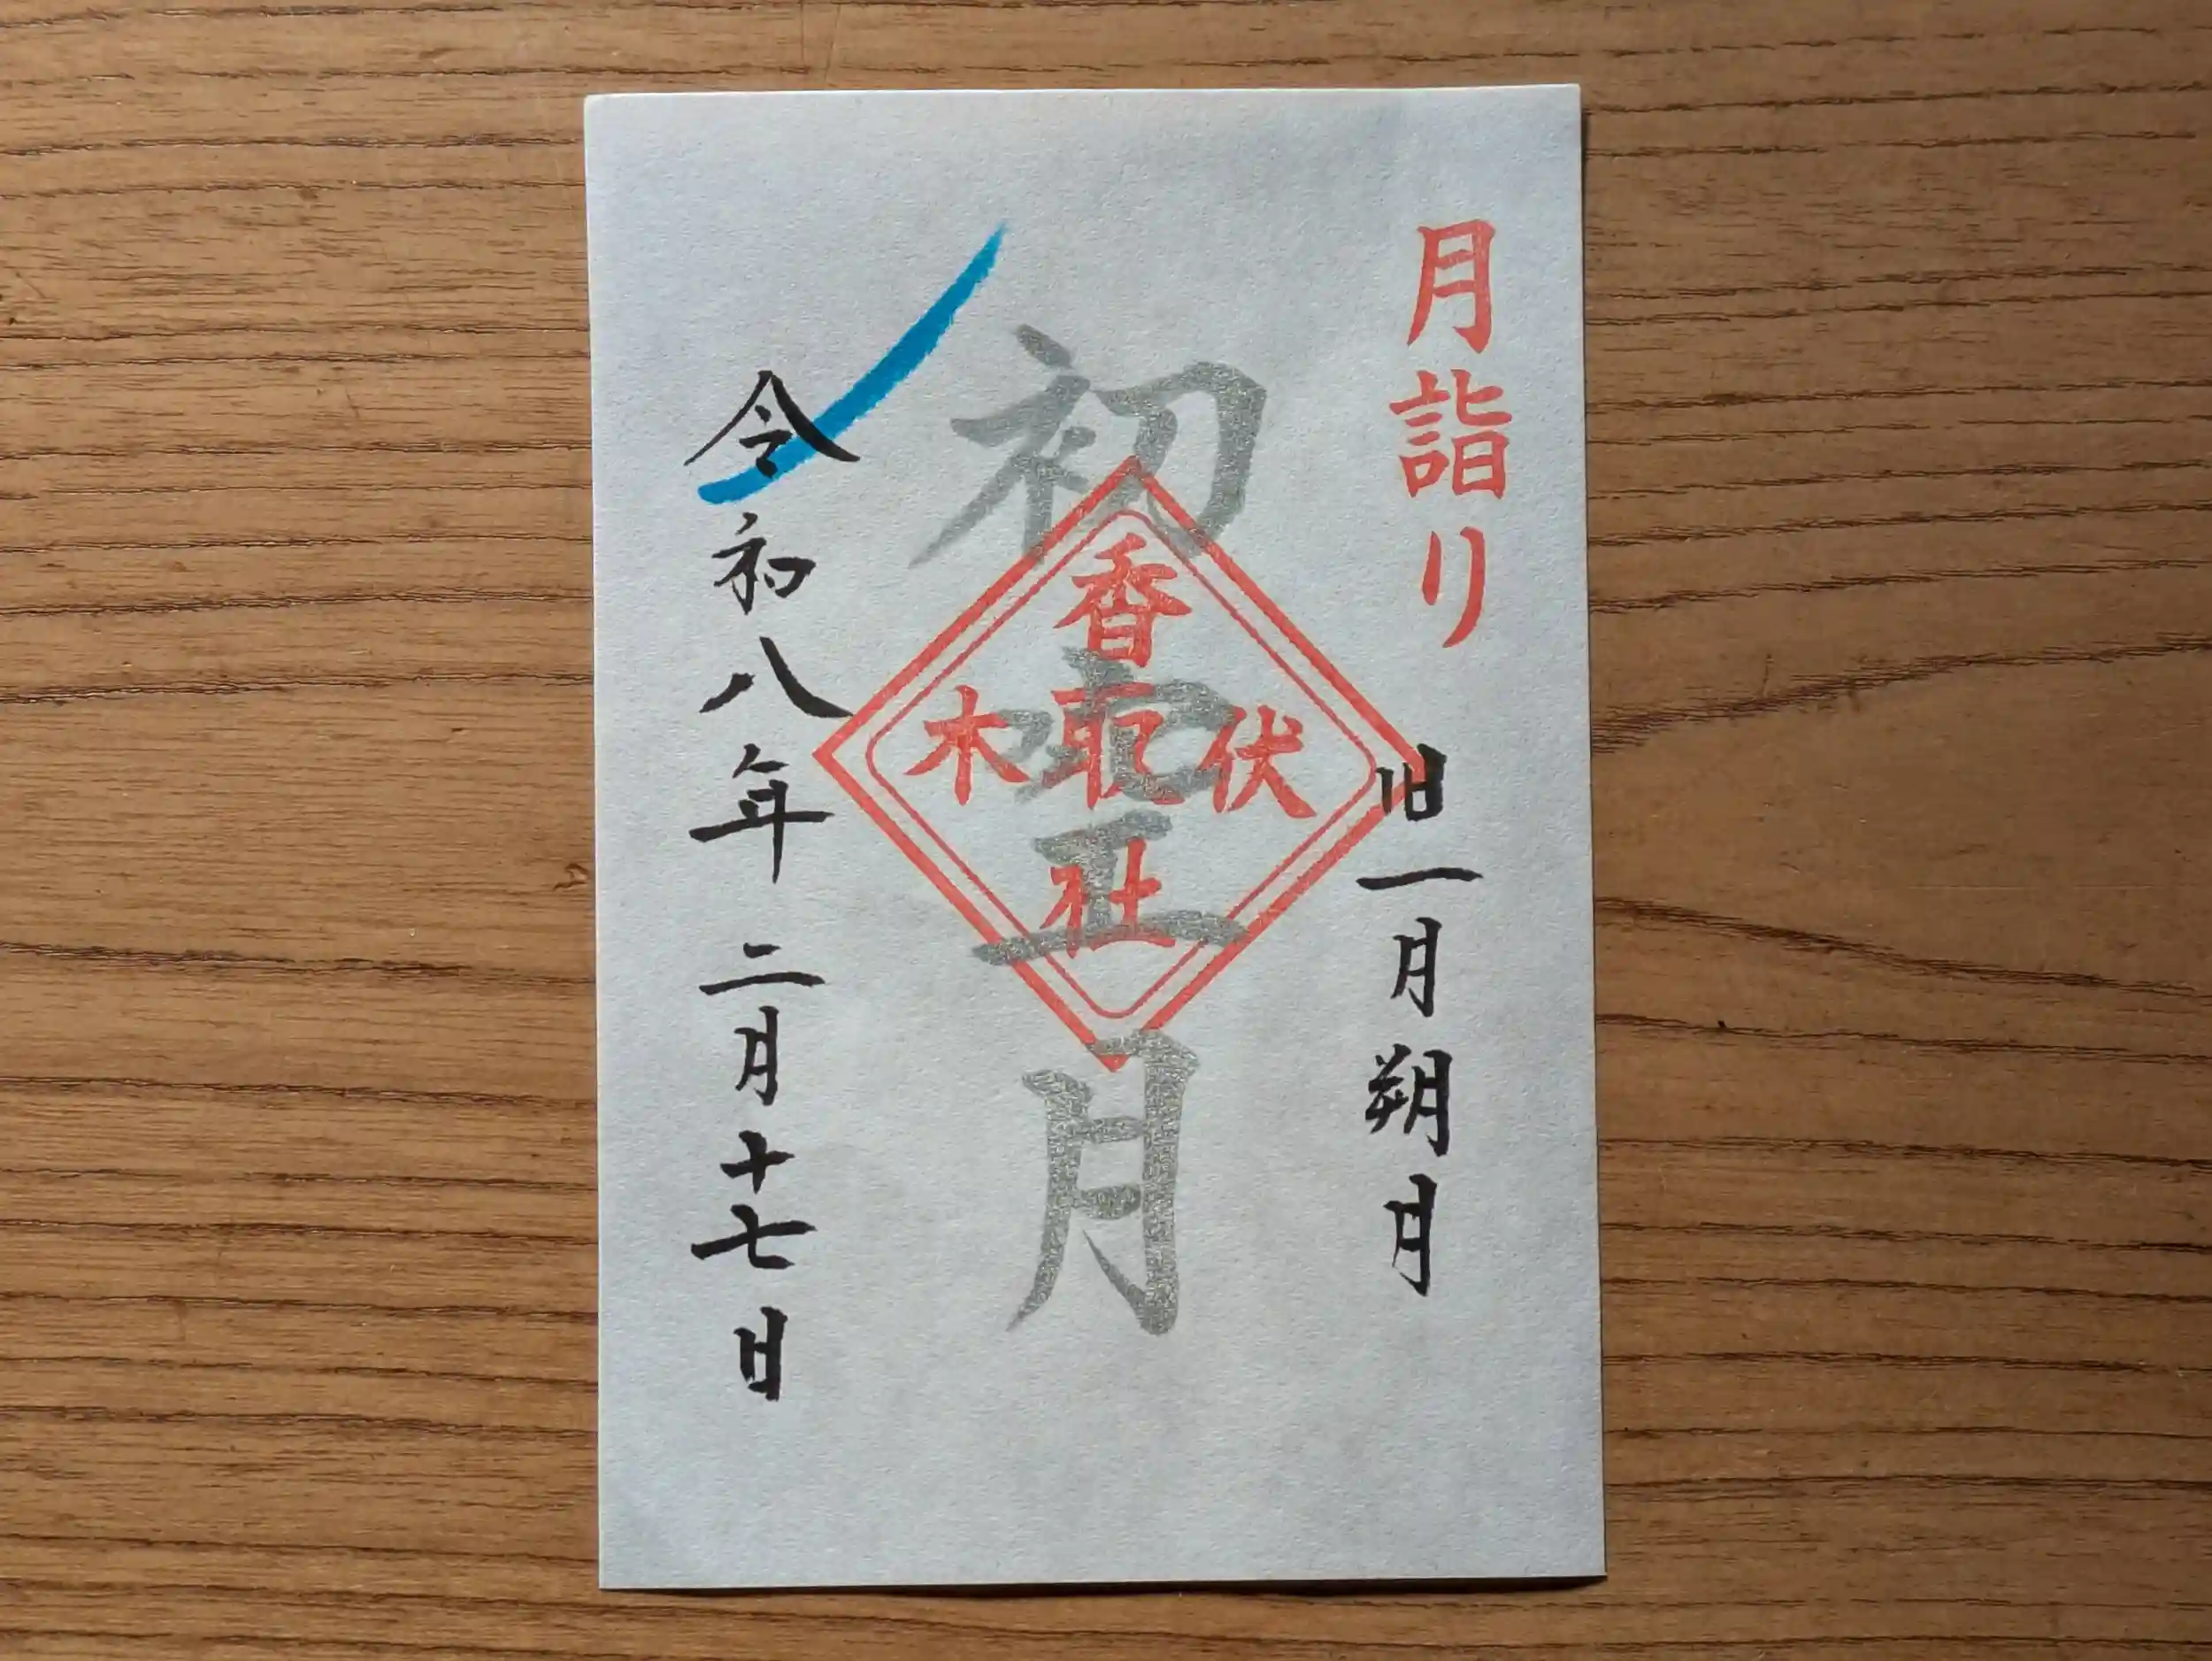 月詣り
旧一月朔日
初
正月
伏木
香取社
令和八年二月十七日